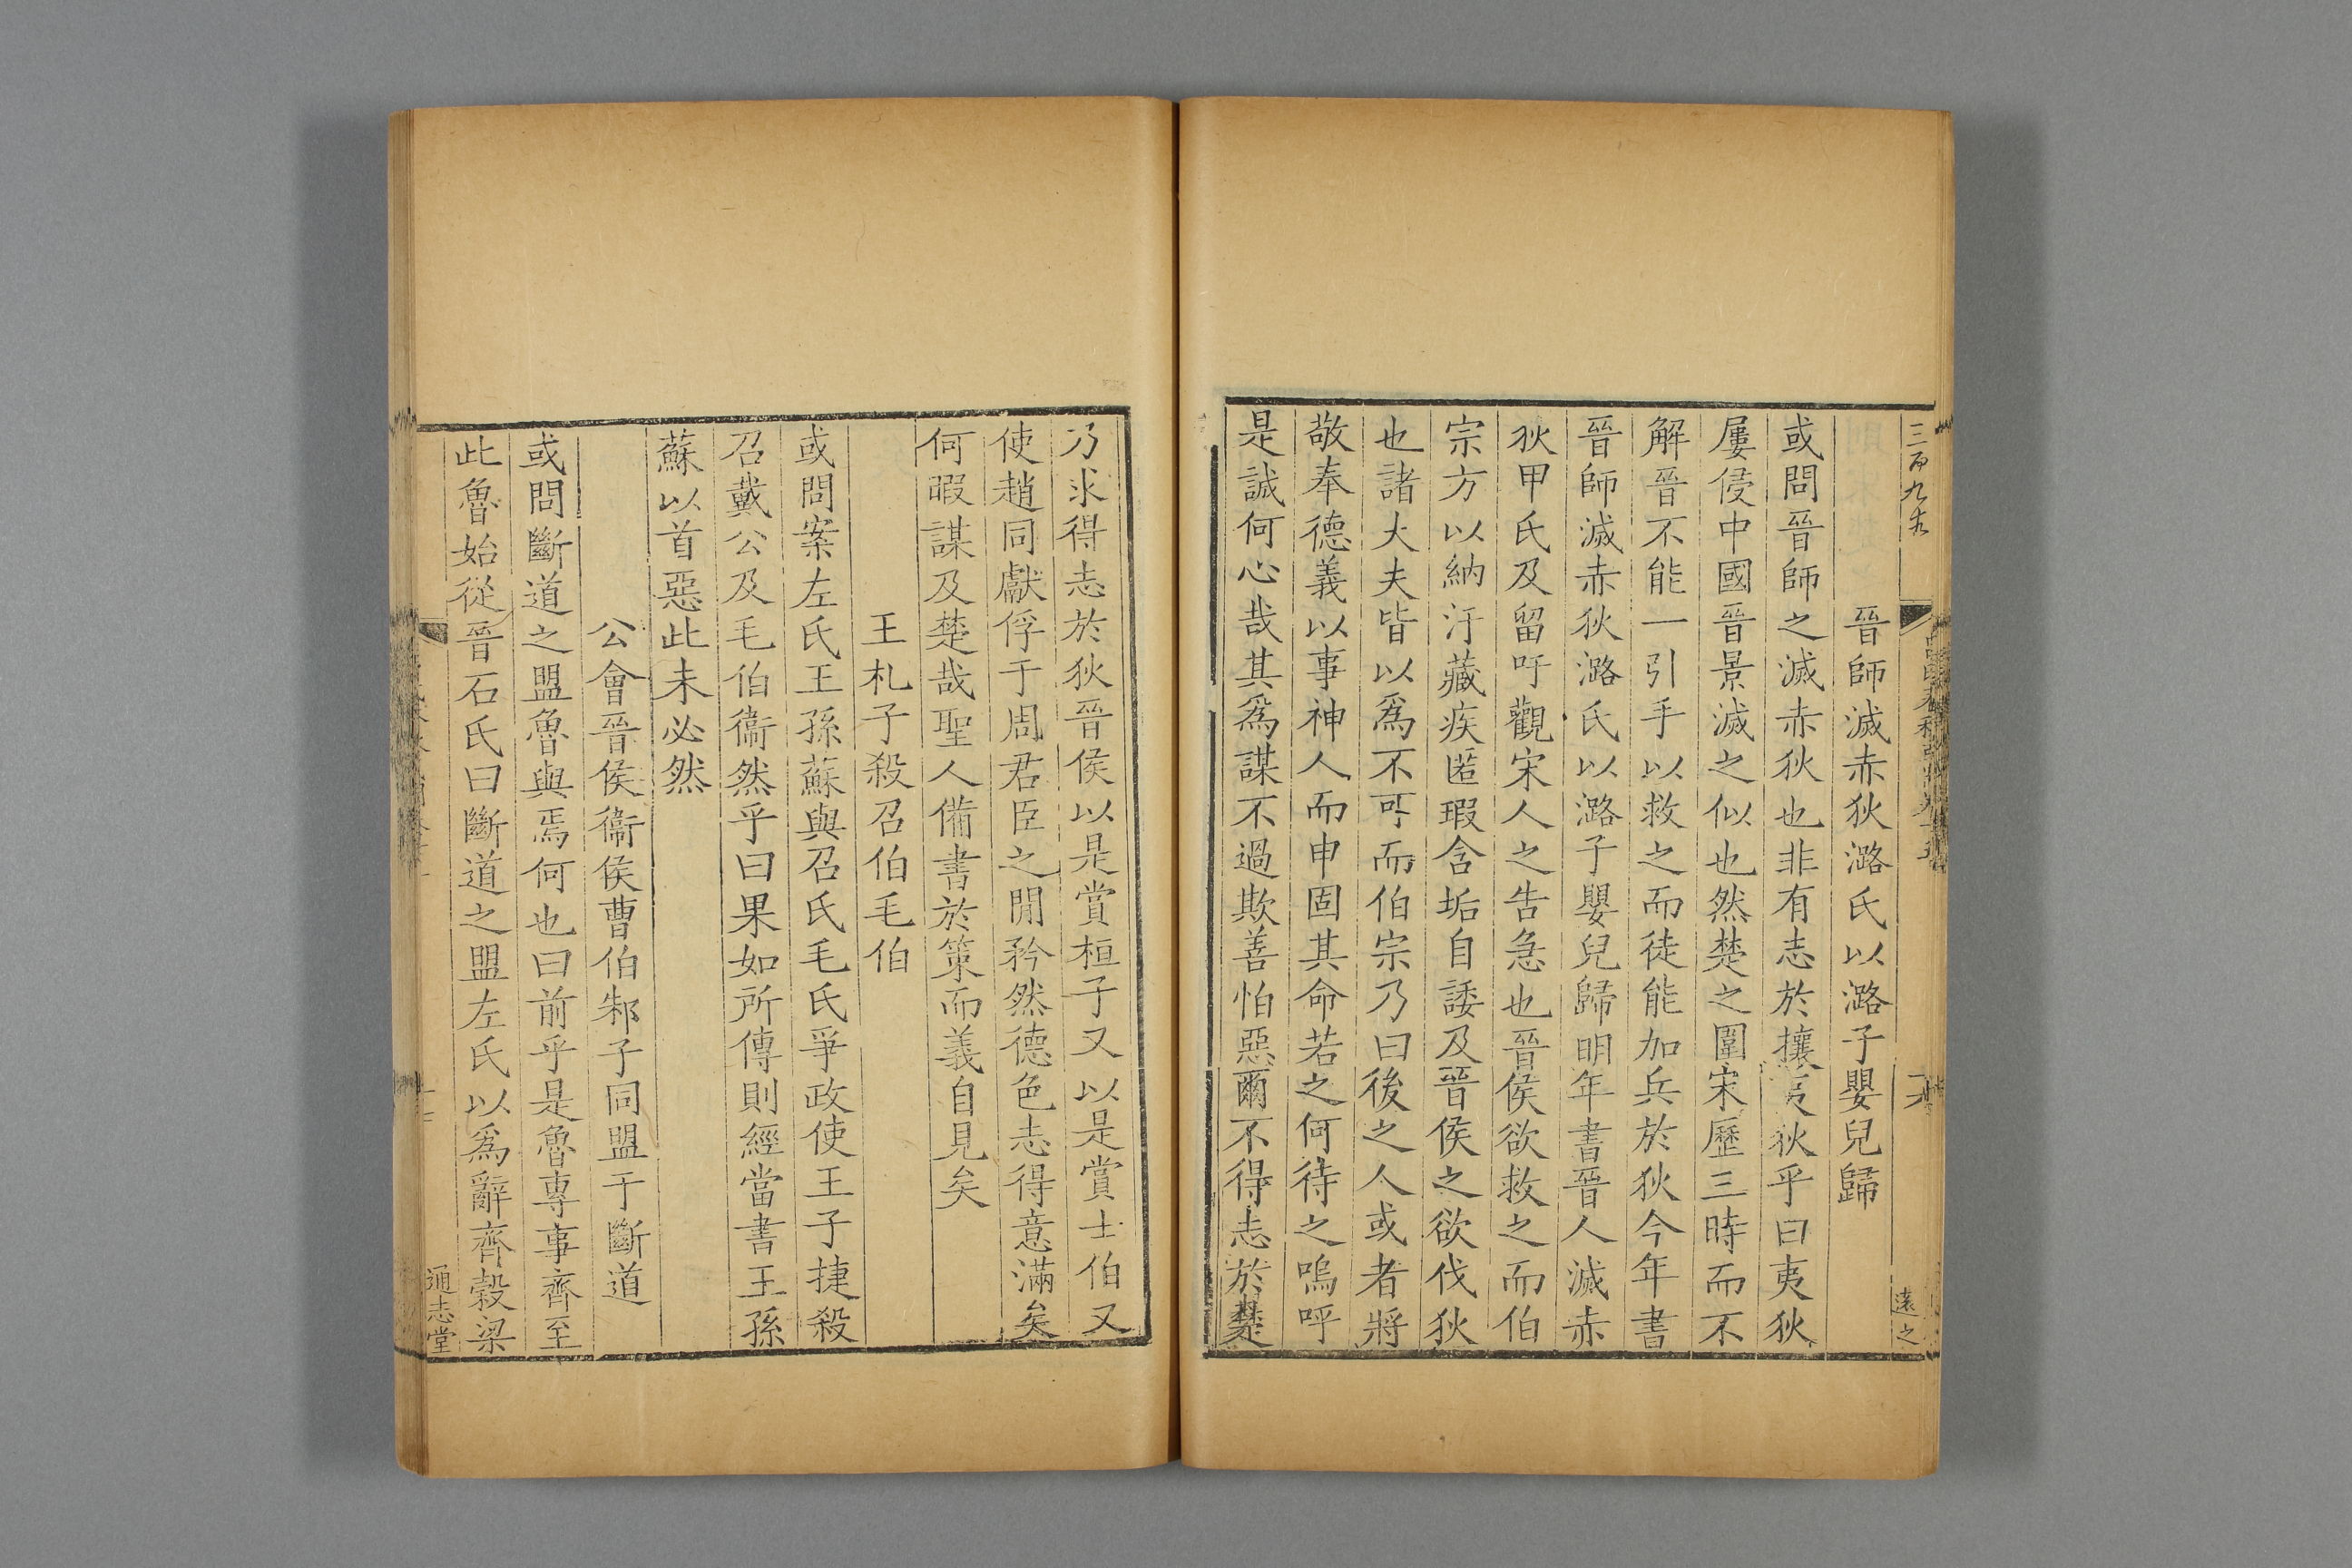 晉師滅赤狄潞氏以潞子嬰兒歸
或問晉師之滅赤狄也非有志於攘夷狄乎曰夷狄
屢侵中國晉景滅之似也然楚之圍宋歷三時而不
解晉不能一引手以救之而徒能加兵於狄今年書
晉師滅赤狄潞氏以潞子嬰兒歸明年書晉人滅赤
狄甲氏及留吁觀宋人之告急也晉侯欲救之而伯
宗方以納汙藏疾匿瑕含垢自諉及晉侯之欲伐狄
也諸大夫皆以爲不可而伯宗乃曰後之人或者將
敬奉德義以事神人而申固其命若之何待之嗚呼
是誠何心哉其爲謀不過欺善怕惡爾不得志於楚
乃求得志於狄晉侯以是賞桓子又以是賞士伯又
使趙同獻俘于周君臣之閒矜然德色志得意滿矣
何暇謀及楚哉聖人備書於策而義自見矣
王札子殺召伯毛伯
或問案左氏王孫蘇與召氏毛氏爭政使王子捷殺
召戴公及毛伯衞然乎曰果如所傳則經當書王孫
蘇以首惡此未必然
公會晉侯衞侯曹伯邾子同盟于斷道
或問斷道之盟魯與焉何也曰前乎是魯專事齊至
此魯始從晉石氏曰斷道之盟左氏以爲辭齊穀梁
通志堂